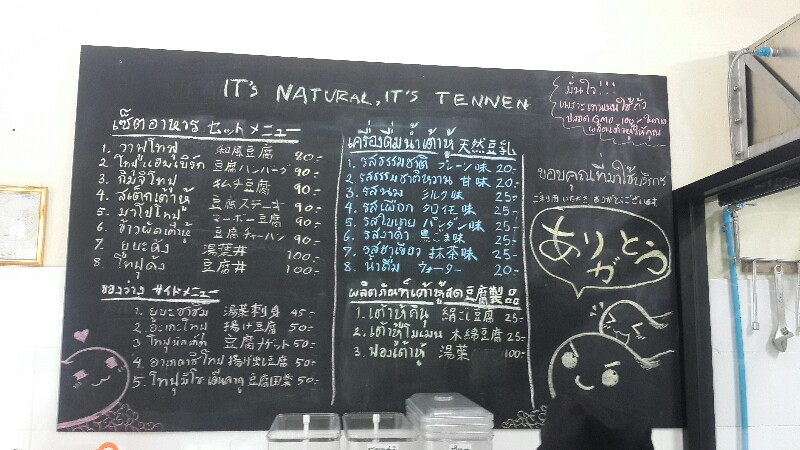 IT'S NATURAL, IT'S TENNEN
เซ็ตอาหาร セットメニュー
1. วาฟูโทฟุ 和風豆腐 80.-
2. โทฟุแฮมเบิร์ก 豆腐ハンバーグ 90.-
3. กิมจิโทฟุ キムチ豆腐 90.-
4. สเต็กเต้าหู้ 豆腐ステーキ 90.-
5. มาโปโทฟุ マーボー豆腐 90.-
6. ข้าวผัดเต้าหู้ 豆腐チャーハン 90.-
7. ยูบะด้ง 湯葉丼 100.-
8. โทฟุด้ง 豆腐丼 100.-
ของว่าง サイドメニュー
1. ยูบะซาชิมิ 湯葉刺身 45-
2. อะเกะโทฟุ 揚げ豆腐 50-
3. โทฟุนักเก็ต 豆腐ナゲット 50-
4. อาเกดาชิโทฟุ 揚げ出し豆腐 50-
5. โทฟุมิโซ 豆腐田楽 50-
เครื่องดื่มน้ำเต้าหู้ 天然豆乳
1. รสธรรมชาติ プレーン味 20-
2. รสธรรมชาติหวาน 甘味 20-
3. รสนม ミルク味 25-
4. รสเผือก タロ芋味 25-
5. รสใบเตย パンダン味 25-
6. รสงาดำ 黒ごま味 25-
7. รสชาเขียว 抹茶味 25-
8. น้ำดื่ม ウォーター 20-
ผลิตภัณฑ์เต้าหู้สด 豆腐製品
1. เต้าหู้คินุ 絹ごし豆腐 25-
2. เต้าหู้โมเมน 木綿豆腐 25-
3. ฟองเต้าหู้ 湯葉 100-
มั่นใจ!!!
เพราะเทนเนนใช้ถั่ว
ปลอด GMO 100%
ขอบคุณที่มาใช้บริการ
ありがとう